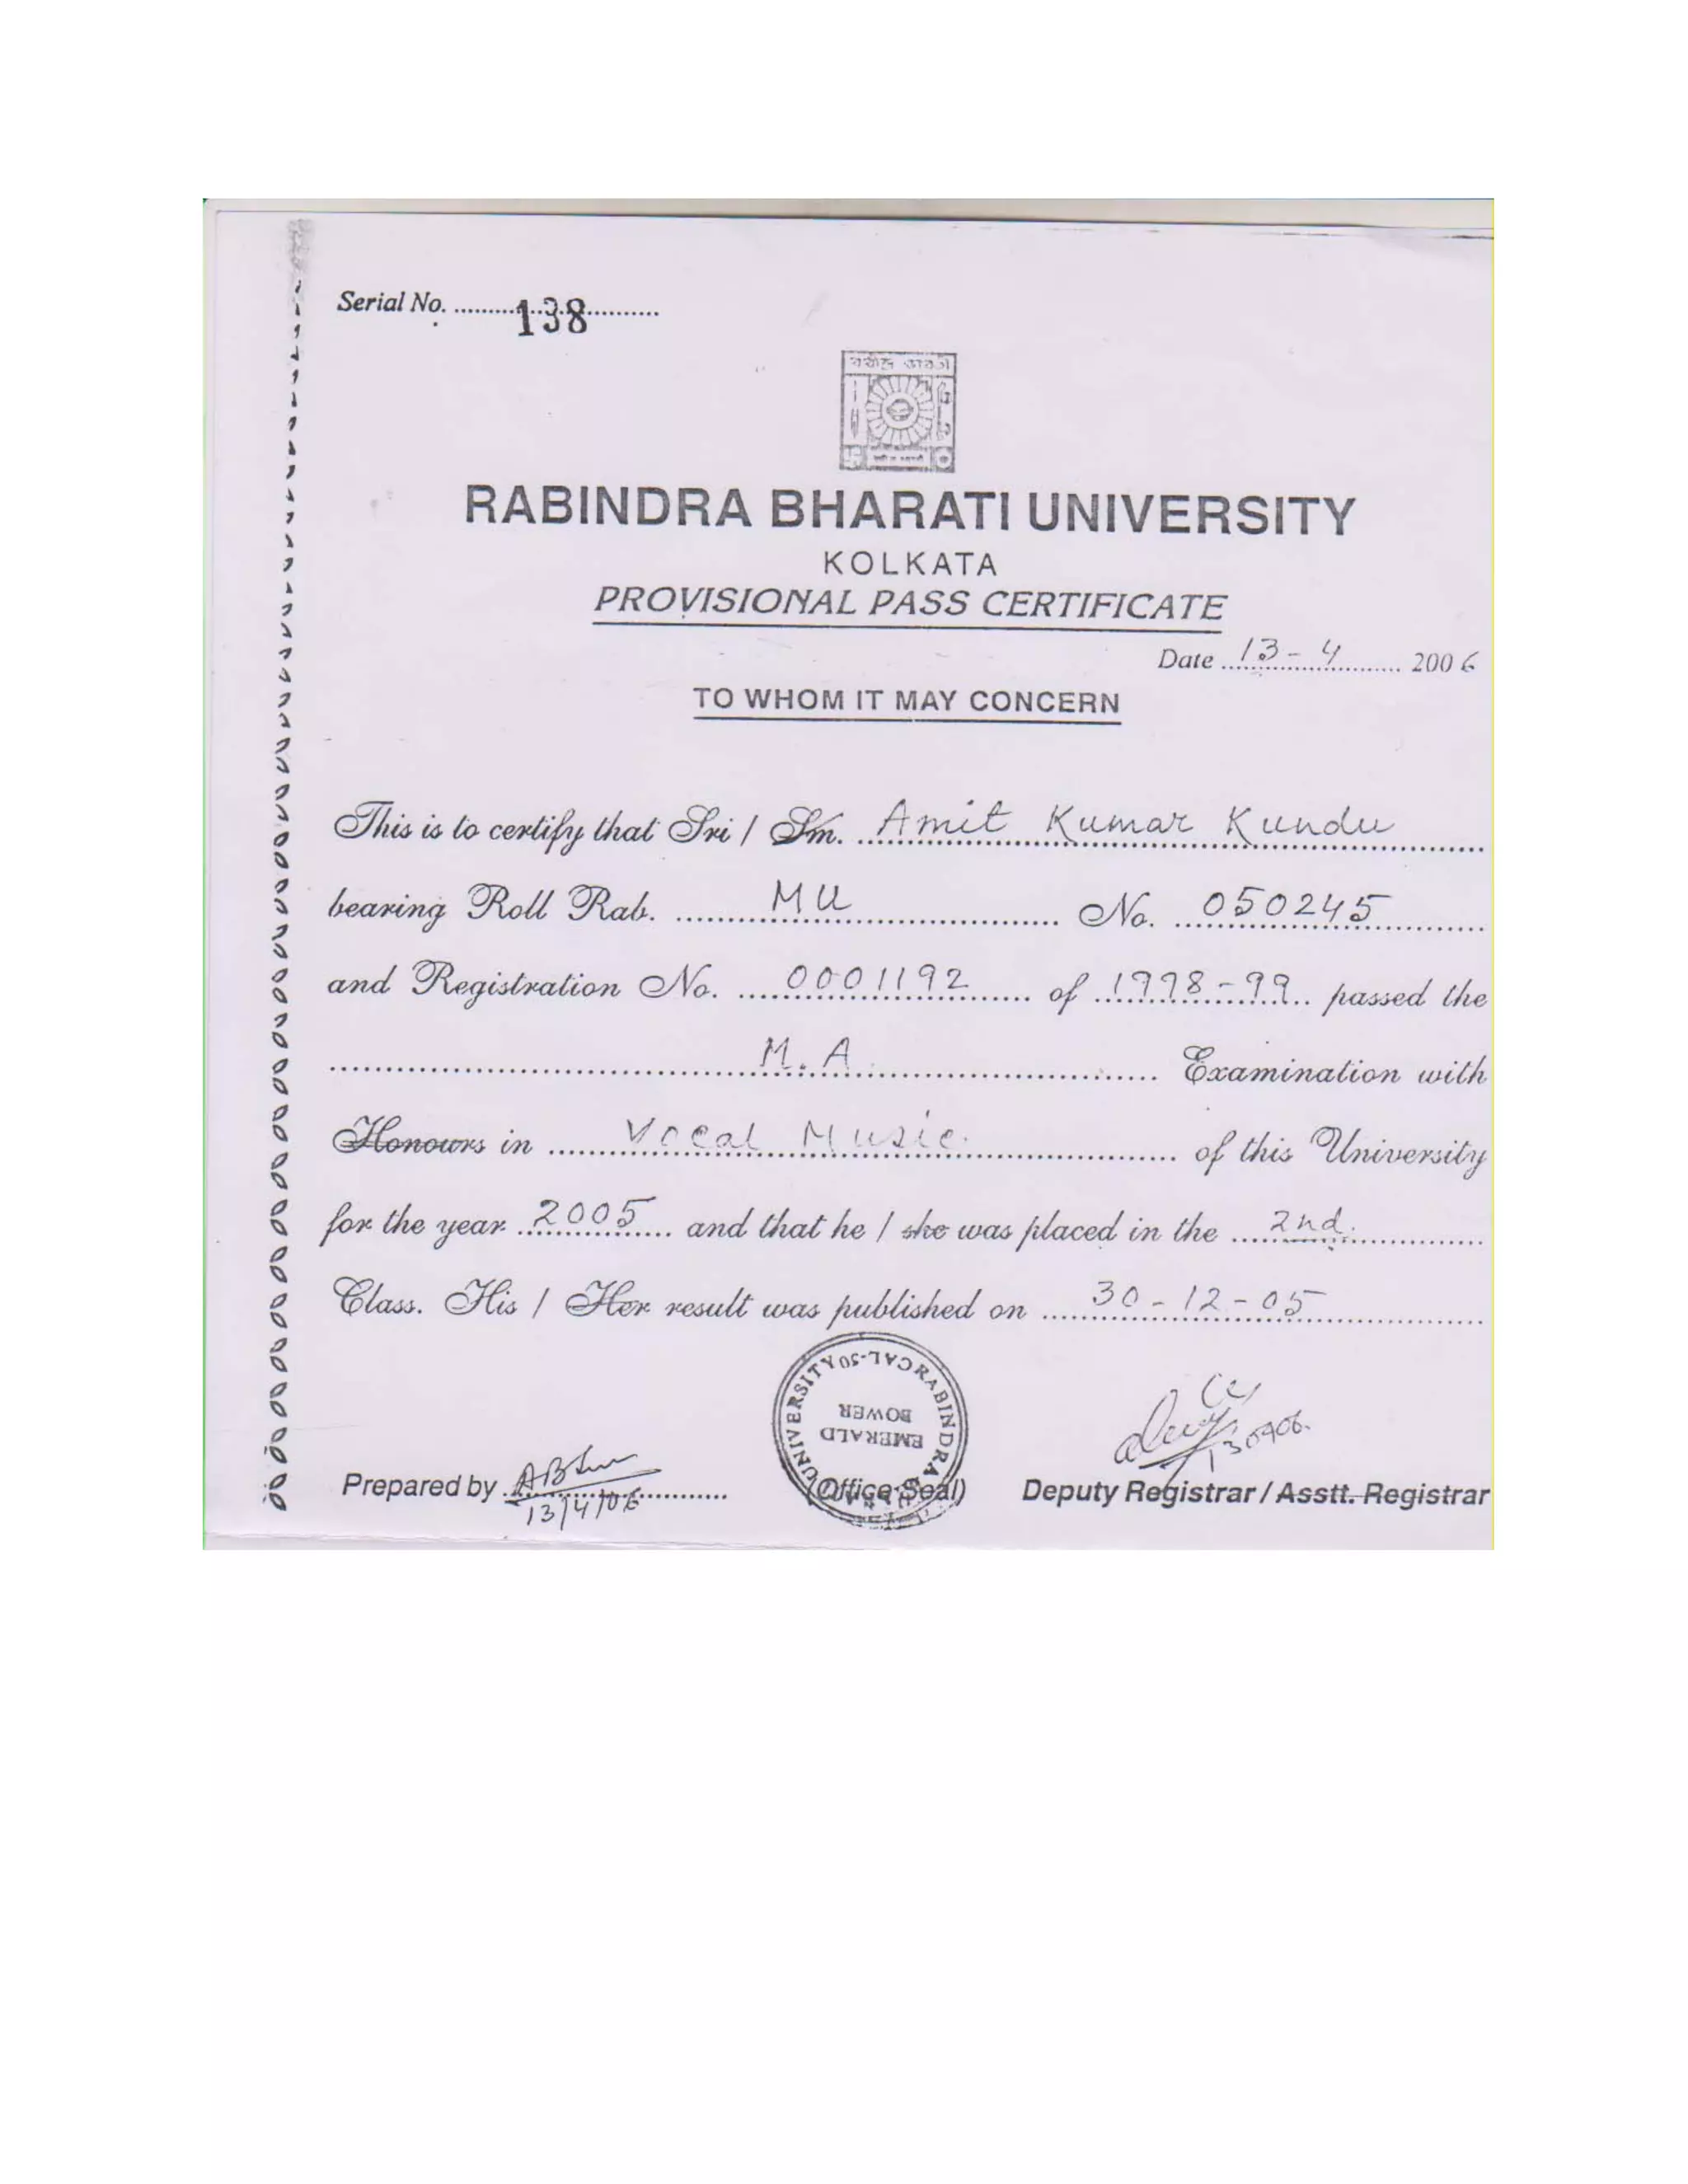 Serial No. 138
রবীন্দ্র ভারতী
RABINDRA BHARATI UNIVERSITY
KOLKATA
PROVISIONAL PASS CERTIFICATE
Date 13-4 2006
TO WHOM IT MAY CONCERN
This is to certify that Sri / Sm. Amit Kumar Kundu
bearing Roll Rab. MU No. 050245
and Registration No. 0001192 of 1998-99 passed the
M.A Examination with
Honours in Vocal Music. of this University
for the year 2005 and that he / she was placed in the 2nd.
Class. His / Her result was published on 30-12-05
RABINDRA UNIVERSITY CAL-50
EMERALD
BOWER
Prepared by 13/4/06 (Office Seal) Deputy Registrar / Asstt. Registrar